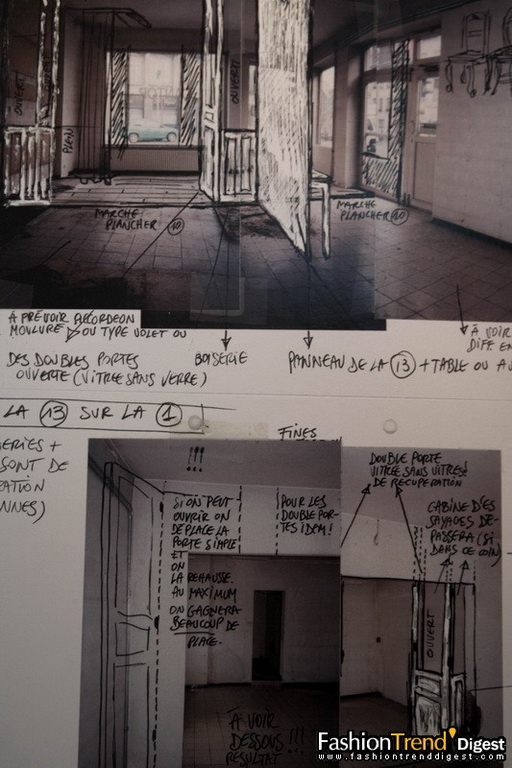 OUVERT
PLAN
OUVERT
MARCHE
PLANCHER 10
MARCHE
PLANCHER 10
A PREVOIR ACCORDEON
MOULURE OU TYPE VOLET OU
DES DOUBLES PORTES
OUVERTE (VITREE SANS VERRE)
BOISERIE
PANNEAU DE LA 13 + TABLE OU
À VOIR
LA 13 SUR LA 1
ERIES +
SONT DE
RATION
NNES)
FINES
!!!
SI ON PEUT
OUVRIR ON
DEPLACE LA
PORTE SIMPLE
ET
ON
LA REHAUSSE.
AU MAXIMUM
ON GAGNERA
BEAUCOUP DE
PLACE.
POUR LES
DOUBLE POR-
TES IDEM!
DOUBLE PORTE
VITREE SANS VITRES!
DE RECUPERATION
CABINE D'ES
SAYAGES DE-
PASSERA (SI
DANS CE COIN)
OUVERT
À VOIR
DESSOUS !!!
RESULTAT
FashionTrendDigest
www.fashiontrenddigest.com